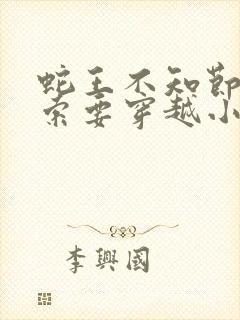 蛇王不知節
索要穿越小
李興國